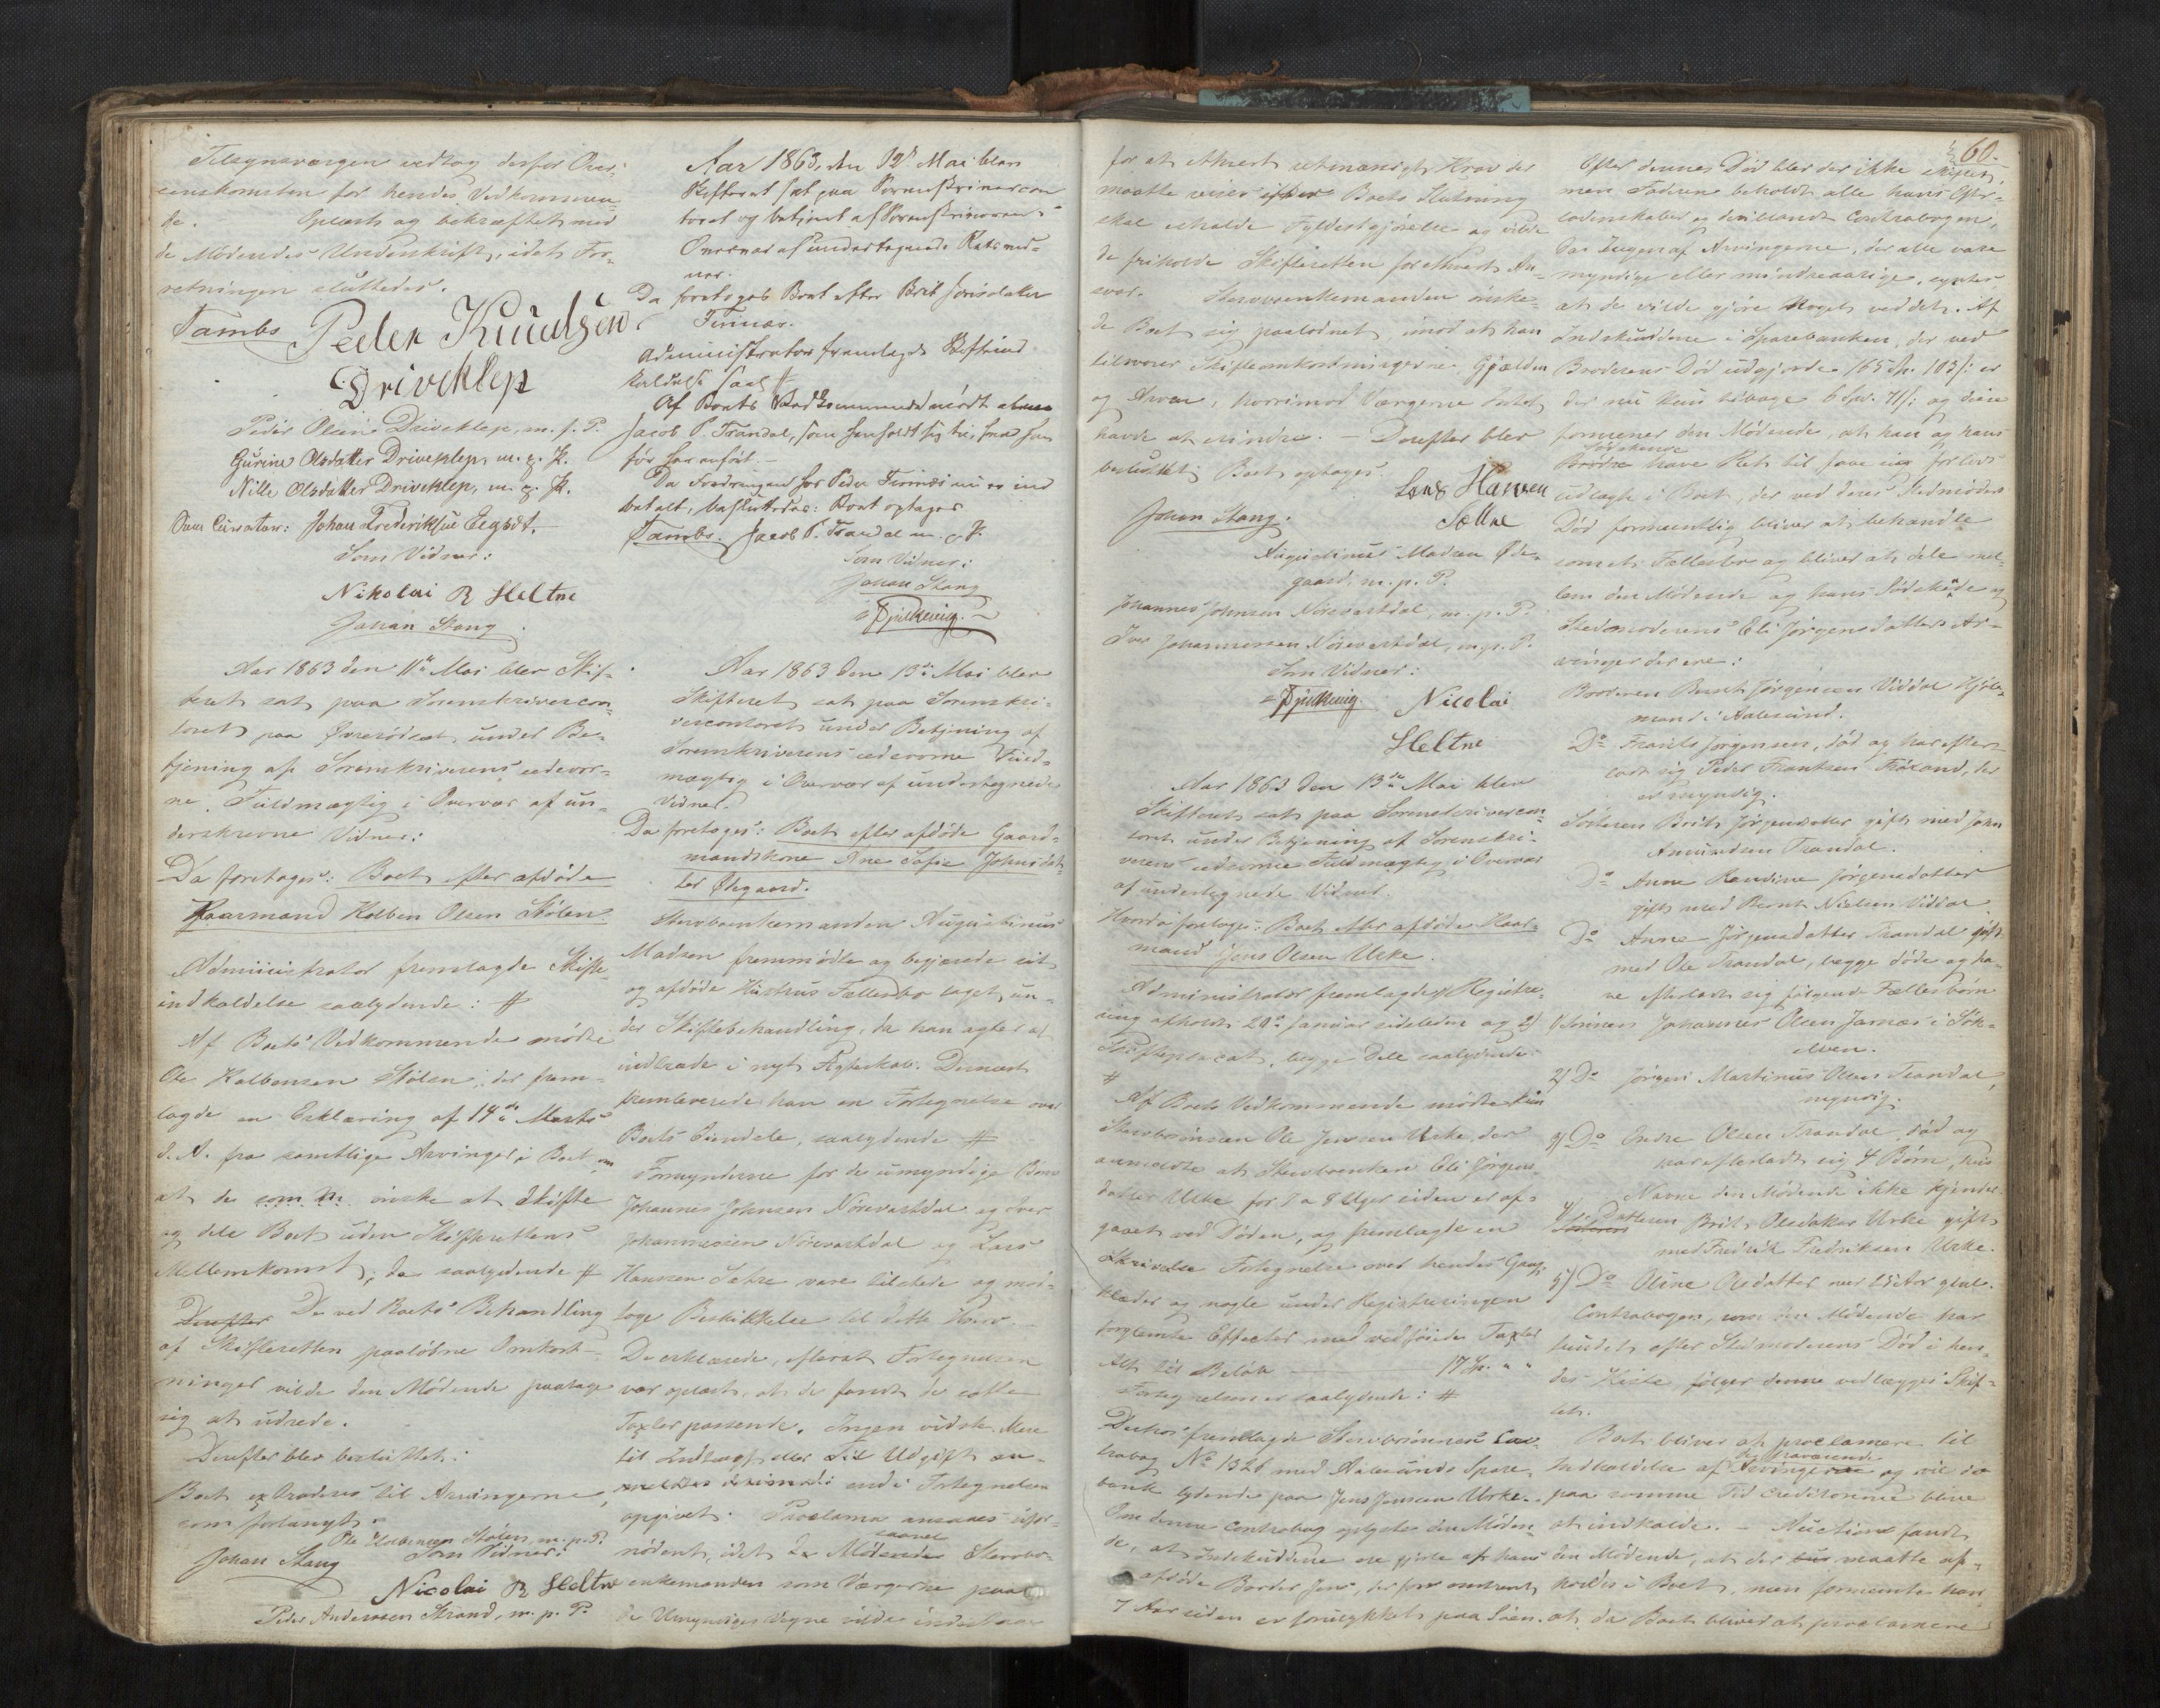 Tilsynsværgen vedtog derfor Over-
eenskomsten for hendes Vedkommen
de. Oplæst og bekræftet med
de Mødendes Underskrift, idet For-
retningen sluttedes.
Tambs Peder Knudsen
Driveklep
Peder Olsen Driveklep, m. f. P.
Gurine Olsdatter Driveklep, m. p. P.
Nille Olsdatter Driveklep, m. p. P.
Som Curator: Johan Frederiksen Eegset.
Som Vidner:
Nikolai R Heltne
Johan Stang
Aar 1863 den 11te Mai blev Skif-
teret sat paa Sorenskrivercon
toret paa under Be-
tjening af Sorenskriverens edsvor-
ne Fuldmægtig i Overvær af un-
derskrevne Vidner:
Da foretoges: Boet efter afdøde
Kaarmand Kolben Olsen Stølen
Administrator fremlagde Skifte
indkaldelse saalydende: #
Af Boets Vedkommende mødte
Ole Kolbensen Stølen, der frem-
lagde en Erklæring af 14de Marts
d. A. fra samtlige Arvinger i Boet om
at de ønske at skifte
og dele Boet uden Skifterettens
Mellemkomst, saalydende #
Derefter Da ved Boets Behandling
af Skifteretten paaløbne Omkost-
ninger vilde den Mødende paatage
sig at udrede.
Derefter blev besluttet:
Boet extraderes til Arvingerne,
som forlangt.
Ole Kolbensen Stølen, m. p. P.
Johan Stang Som Vidner:
Nicolai R Heltne
Peder Andersen Strand, m. p. P.
Aar 1863, den 12te Mai blev
Skifteret sat paa Sorenskrivercon
toret og betjent af Sorenskriveren i
Overvær af undertegnede Rets
Da foretoges Boet efter Brit
Administrator fremlagde Skifteind
kaldelse saal. #
Af Boets Vedkommende mødte
Jacob P. Trandal, som henholdt sig til, hvad han
før har anført.
Da Fordringen for Peder nu er ind
betalt, besluttedes: Boet optages
Tambs. Jacob P. Trandal m. p. P.
Som Vidner:
Johan Stang
Aar 1863 den 13de Mai blev
Skifteret sat paa Sorenskri-
vercontoret under Betjening af
Sorenskriverens edsvorne Fuld-
mægtig i Overvær af undertegnede
Vidner.
Da foretoges: Boet efter afdøde Gaard-
mandskone Ane Sofie Johnsdat-
ter Ødegaard.
Stervboenkemanden Augustinus
Madsen fremmødte og begjærede sit
og afdøde Hustrus Fællesbo taget un-
der Skiftebehandling, da han agter at
indtræde i nyt Ægteskab. Dernæst
fremleverede han en Fortegnelse over
Boets Eiendele, saalydende #
Formynderne for de umyndige Børn
Johannes Johnsen Nørevartdal og Iver
Johannessen Nørevartdal og Lars
Hanssen Sætre vare tilstede og mod-
toge Beskikkelse til dette Hverv.
De erklærede, efterat Fortegnelsen
var oplæst, at de fandt de satte
Taxter passende. Ingen vidste Mere
til Indtægt eller Til Udgift an-
end i Fortegnelsen
opgivet. Proclama ansaaes ufor-
nødent, idet saavel Stervbo-
enkemanden som Værgerne paa
de Umyndiges Vegne vilde indestaae
60.
for at ethvert retmæssigt Krav der
maatte reises efter Boets Slutning
skal erholde Fyldestgjørelse og vilde
de friholde Skifteretten for ethvert An-
svar. Stervboenkemanden ønske-
de Boet sig paalodnet imod at han
tilsvarer Skifteomkostningerne, Gjælden
og Arven, hvorimod Værgerne Intet
havde at erindre. – Derefter blev
besluttet: Boet optages.
Lars Hansen
Johan Stang. Sættre
Augustinus Madsen Øde-
gaard, m. p. P.
Johannes Johnsen Nørevartdal, m. p. P.
Iver Johannessen Nørevartdal, m. p. P.
Som Vidner:
Nicolai
Heltne
Aar 1863 den 13de Mai blev
Skifteret sat paa Sorenskrivercon
toret under Betjening af Sorenskri-
verens edsvorne Fuldmægtig i Overvær
af undertegnede Vidner.
Hvorda foretoges: Boet efter afdøde Kaar-
mand Jens Olsen Urke.
Administrator fremlagde 1) Registre-
ring afholdt 29de Januar sidstleden og 2)
Skifteplacat, begge Dele saalydende
#
Af Boets Vedkommende mødte kun
Stervbosønnen Ole Jensen Urke, der
anmeldte at Stervboenken Eli Jørgens-
datter Urke for 7 a 8 Uger siden er af-
gaaet ved Døden, og fremlagde en
Skrivelse Fortegnelse over hendes Gang-
klæder og nogle under Registreringen
forglemte Effecter med vedføiede Taxter
Alt til Beløb 17 Sp. " "
Fortegnelsen er saalydende: #
Derhos fremlagde Stervbosønnen Con-
trabog No 1326 med Aalesunds Spare-
bank lydende paa Jens Jensen Urke.
Om denne Contrabog oplyste den Møden
de, at Indskuddene ere gjorte af hans
afdøde Broder Jens, der for omtrent
7 Aar siden er forulykket paa Søen.
Efter dennes Død blev der ikke skiftet,
men Faderen beholdt alle hans Efter-
ladenskaber og deriblandt Contrabogen,
da Ingen af Arvingerne, der alle vare
myndige eller mindreaarige, syntes
at de vilde gjøre Noget ved det. Af
Indskuddene i Sparebanken, der ved
Broderens Død udgjorde 165 Sp. 103 s: er
der nu kun tilbage 6 Spd. 71 s: og disse
formener den Mødende, at han og hans
Sødskende
Brødre have Ret til faae sig forlods
udlagt i Boet, der ved deres Stedmoders
Død formentlig bliver at behandle
som et Fællesbo og bliver at dele mel-
lem den Mødende og hans Sødskende og
Stedmoderens Eli Jørgensdatters Ar-
vinger der ere:
Broderen Bernt Jørgensen Viddal
mand i Aalesund.
Do Frants Jørgensen, død og har efter-
ladt sig Peder Frantsen, der
er myndig.
Søsteren Brit Jørgensdatter gift med John
Amundsen Trandal.
Do Anne Jørgensdatter
gift med Bernt Nielsen Viddal
Do Anne Jørgensdatter Trandal gift
med Ole Trandal, begge døde og ha-
ve efterladt sig følgende Fællesbørn
1) Sønnen Johannes Olsen i Søk-
elven.
2) Do Jørgen Martinus Olsen Trandal,
myndig.
3) Do Endre Olsen Trandal, død og
har efterladt sig 4 Børn, hvis
Navne den Mødende ikke kjender
4) Datteren Brit Olsdatter Urke gift
med Fredrik Fredriksen Urke.
5) Do Oline Olsdatter over 25 Aar gl.
Contrabogen, som den Mødende har
fundet efter Stedmoderens Død i hen-
des Kiste, følger denne vedlægges Skif-
tet.
Boet bliver at proclamere til
Indkaldelse af de fraværende Arvinger og vil da
paa samme Tid Creditorerne blive
at indkalde. – Auction fandt
den Mødende, at der maatte af-
holdes i Boet, men formente han
at, da Boet bliver at proclamere